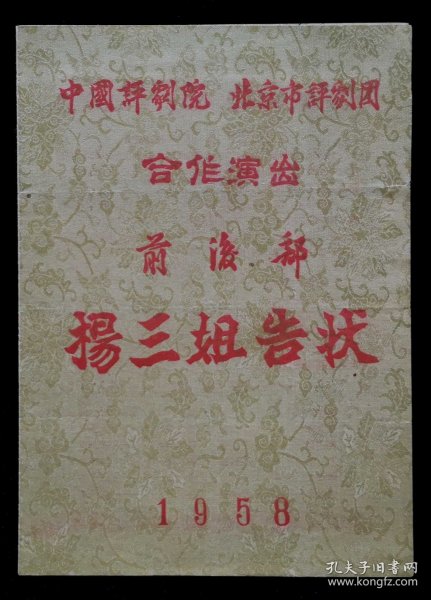 中國評劇院 北京市評劇团
合作演出
前後部
楊三姐告状
1958
孔夫子旧书网
www.kongfz.com